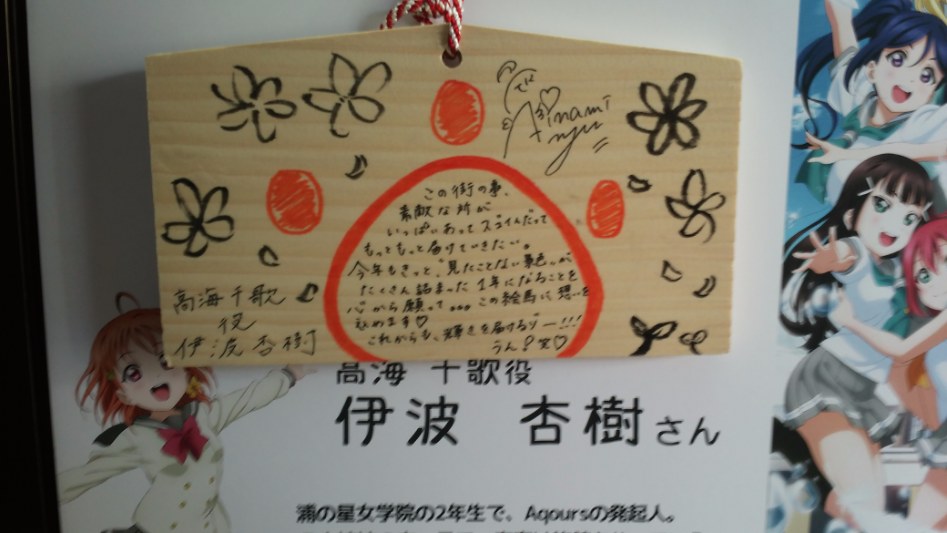 Ainami
nyu
この街の事、
素敵な所が
いっぱいあってスゴイんだって
もっともっと届けていきたい。
今年もきっと、"見たことない景色"が
たくさん詰まった1年になることを
心から願って。。。この絵馬に想いを
込めます♡
これからも、輝きを届けるゾー!!!
うん?笑♡
高海千歌
役
伊波杏樹
高海 千歌役
伊波 杏樹さん
浦の星女学院の2年生で、Aqoursの発起人。